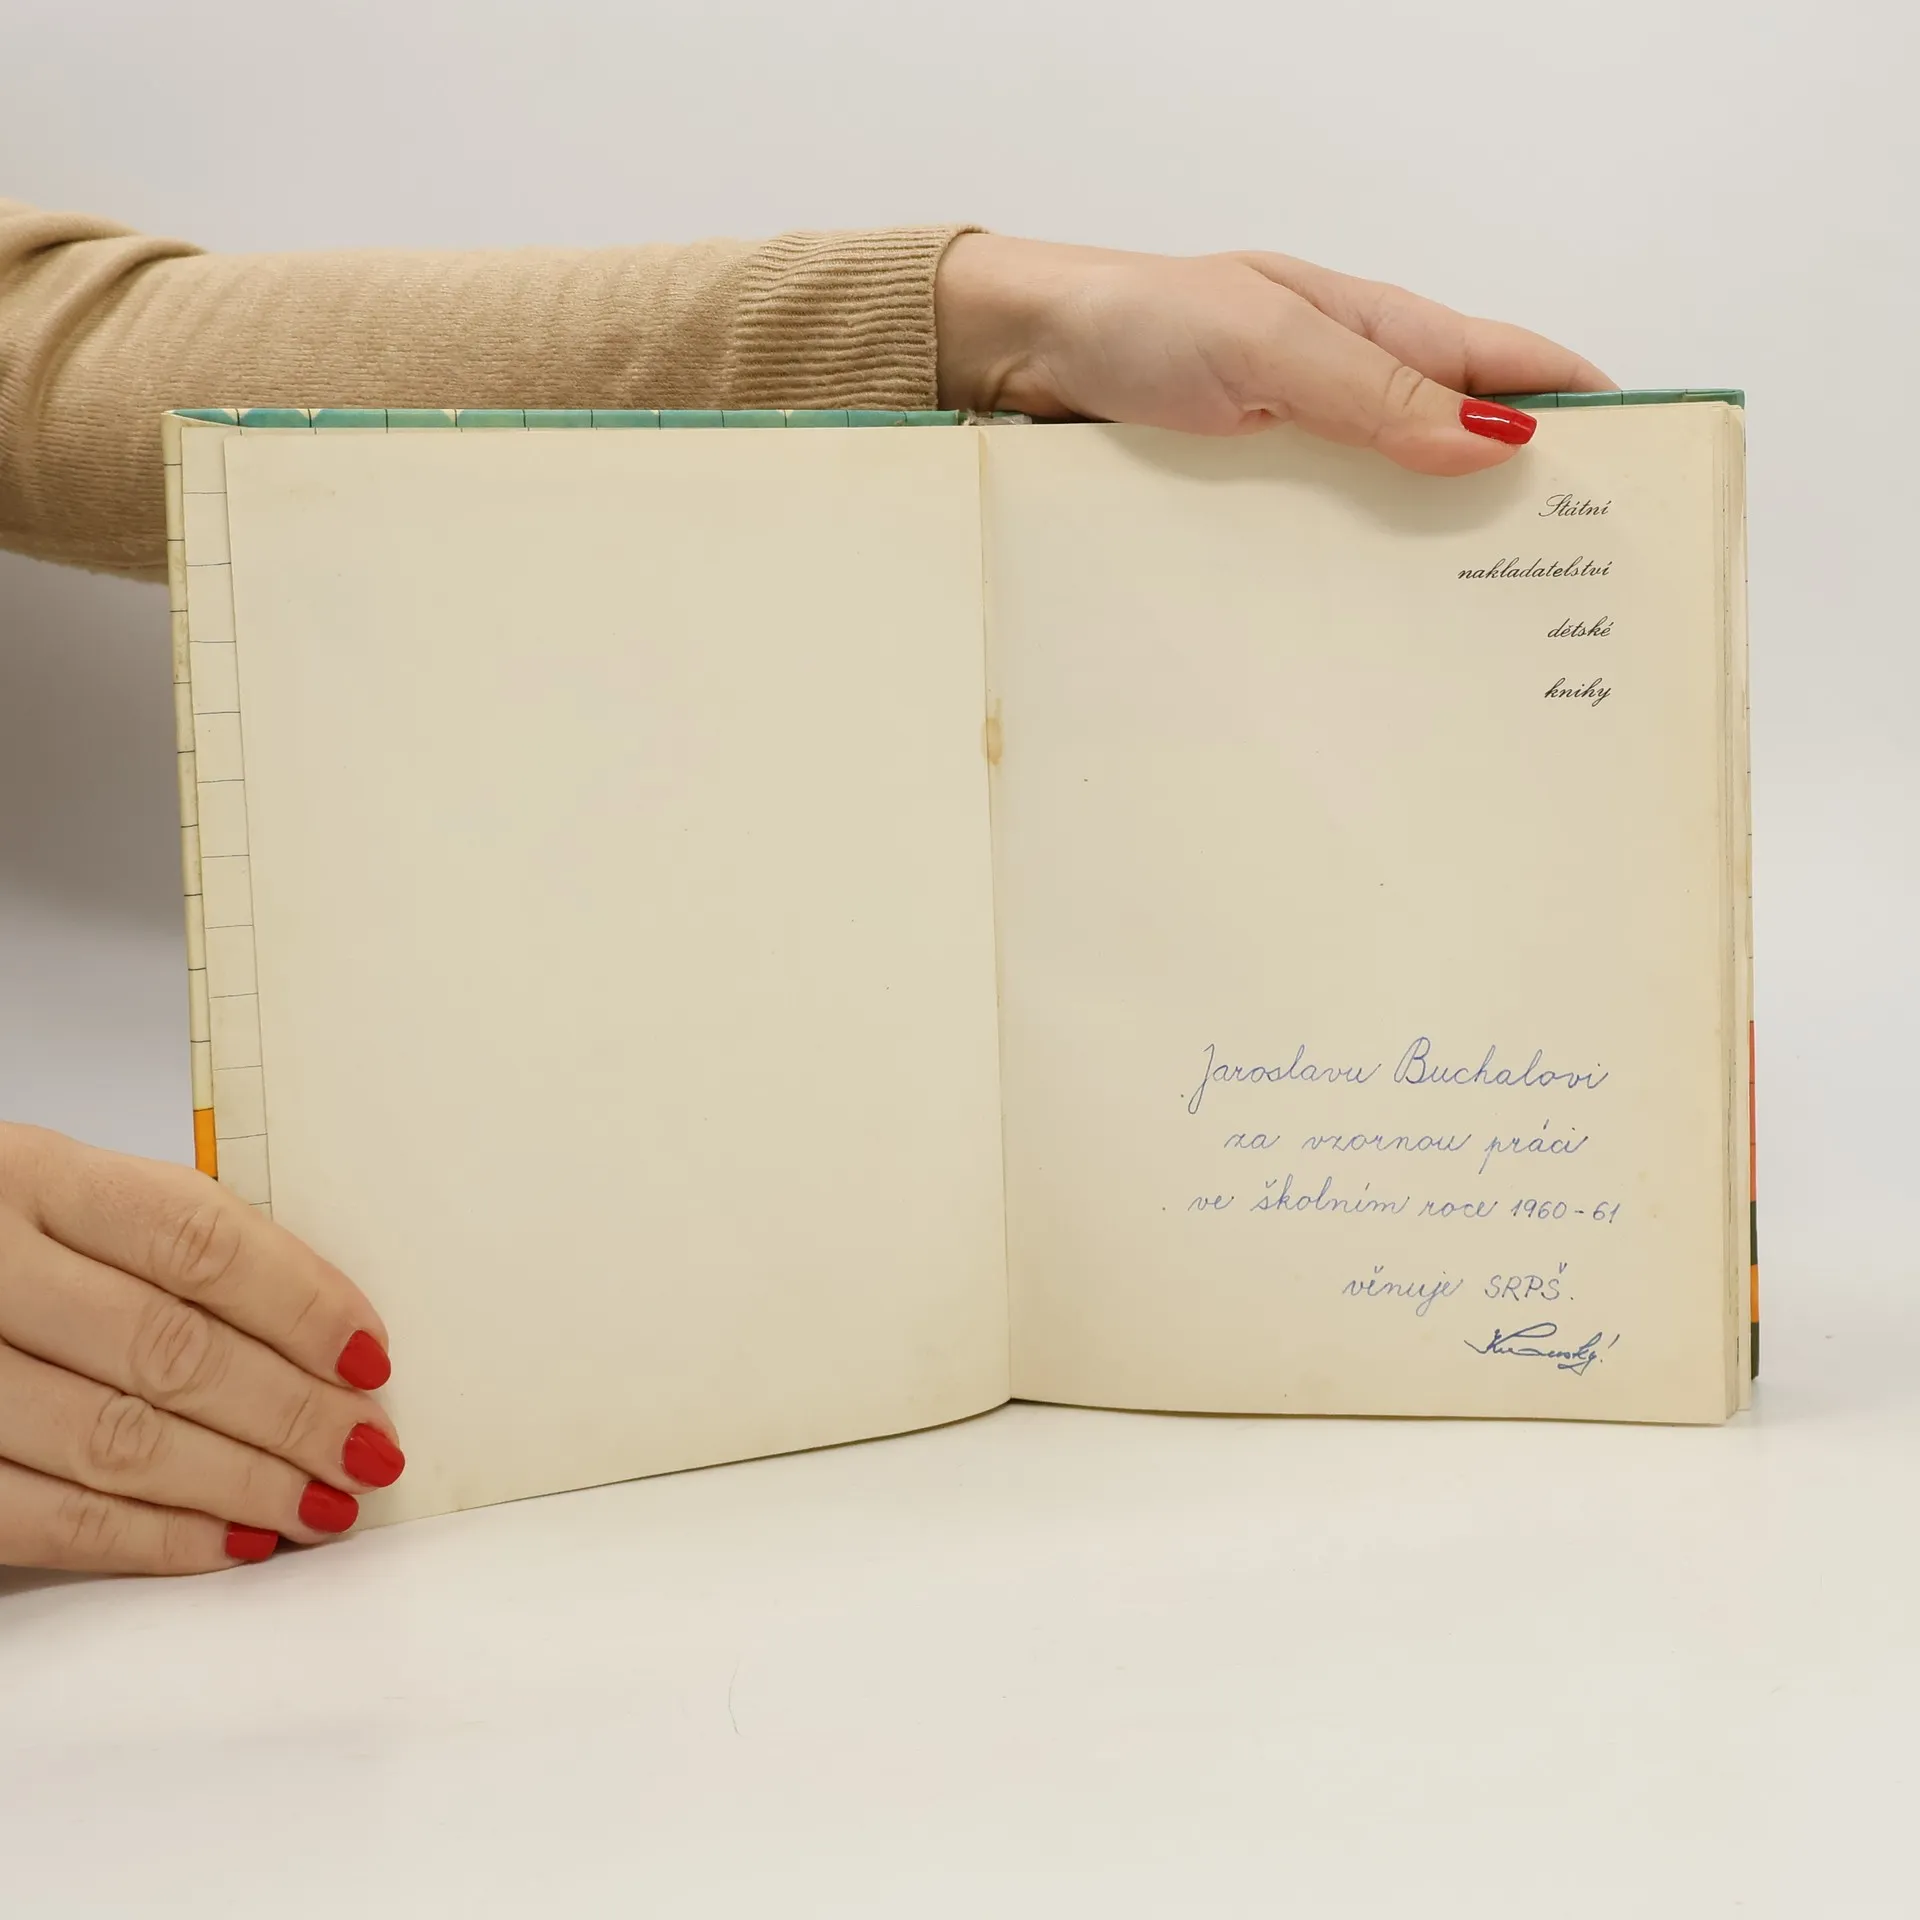 Státní
nakladatelství
dětské
knihy
Jaroslavu Buchalovi
za vzornou práci
ve školním roce 1960-61
věnuje SRPŠ.